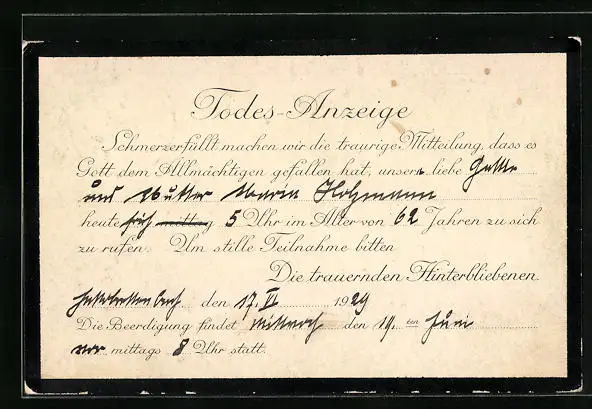 Todes-Anzeige
Schmerzerfüllt machen wir die traurige Mitteilung, dass es
Gott dem Allmächtigen gefallen hat, unsere liebe Gattin
und Mutter Maria Holzmann
heute früh mittag 5 Uhr im Alter von 62 Jahren zu sich
zu rufen. Um stille Teilnahme bitten
Die trauernden Hinterbliebenen.
den 17. VI. 1929
Die Beerdigung findet Mittwoch den 19. ten Juni
vor mittags 8 Uhr statt.